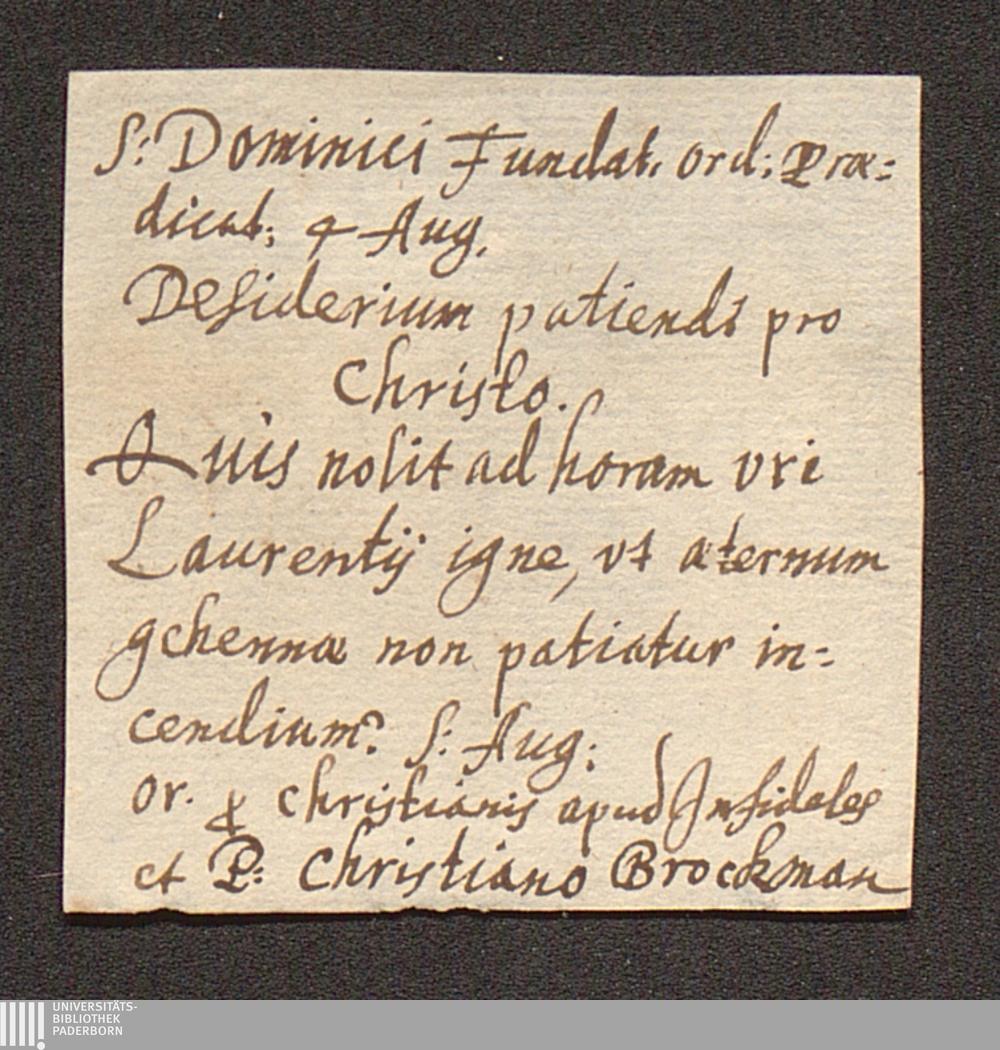 S: Dominici Fundat. ord: Præ=
dicat; 4 Aug.
Desiderium patiendi pro
Christo.
Quis nolit ad horam vri
Laurentij igne, vt æternum
gehennæ non patiatur in=
cendium? S: Aug:
or. p Christianis apud Infideles
et P: Christiano Brockman
UNIVERSITÄTS-
BIBLIOTHEK
PADERBORN